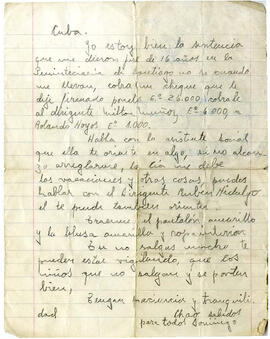 Cuba.
Yo estoy bien la sentencia
que me dieron fué de 16 años en la
Penintenciaria de Santiago no se cuando
me llevan, cobra un cheque que te
deje firmado por E° 26.000, cobrale
al dirigente Milton Muñoz E° 6.000, a
Rolando Hoyos E° 1.000.
Habla con la asistente social
que ella te oriente en algo, si no alcan
zo arreglarme, la cia me debe
las vacaciones y otras cosas, puedes
hablar con el dirigente Rubén Hidalgo
el te puede tambien orientar
Traeme el pantalón amarillo
y la blusa amarilla y ropa interior.
Tu no salgas mucho te
pueden estar vigilando, que los
niños que no salgan y se porten
bien,
Tengan paciencia y tranquili-
dad
Chao saludos
para todos Domingo